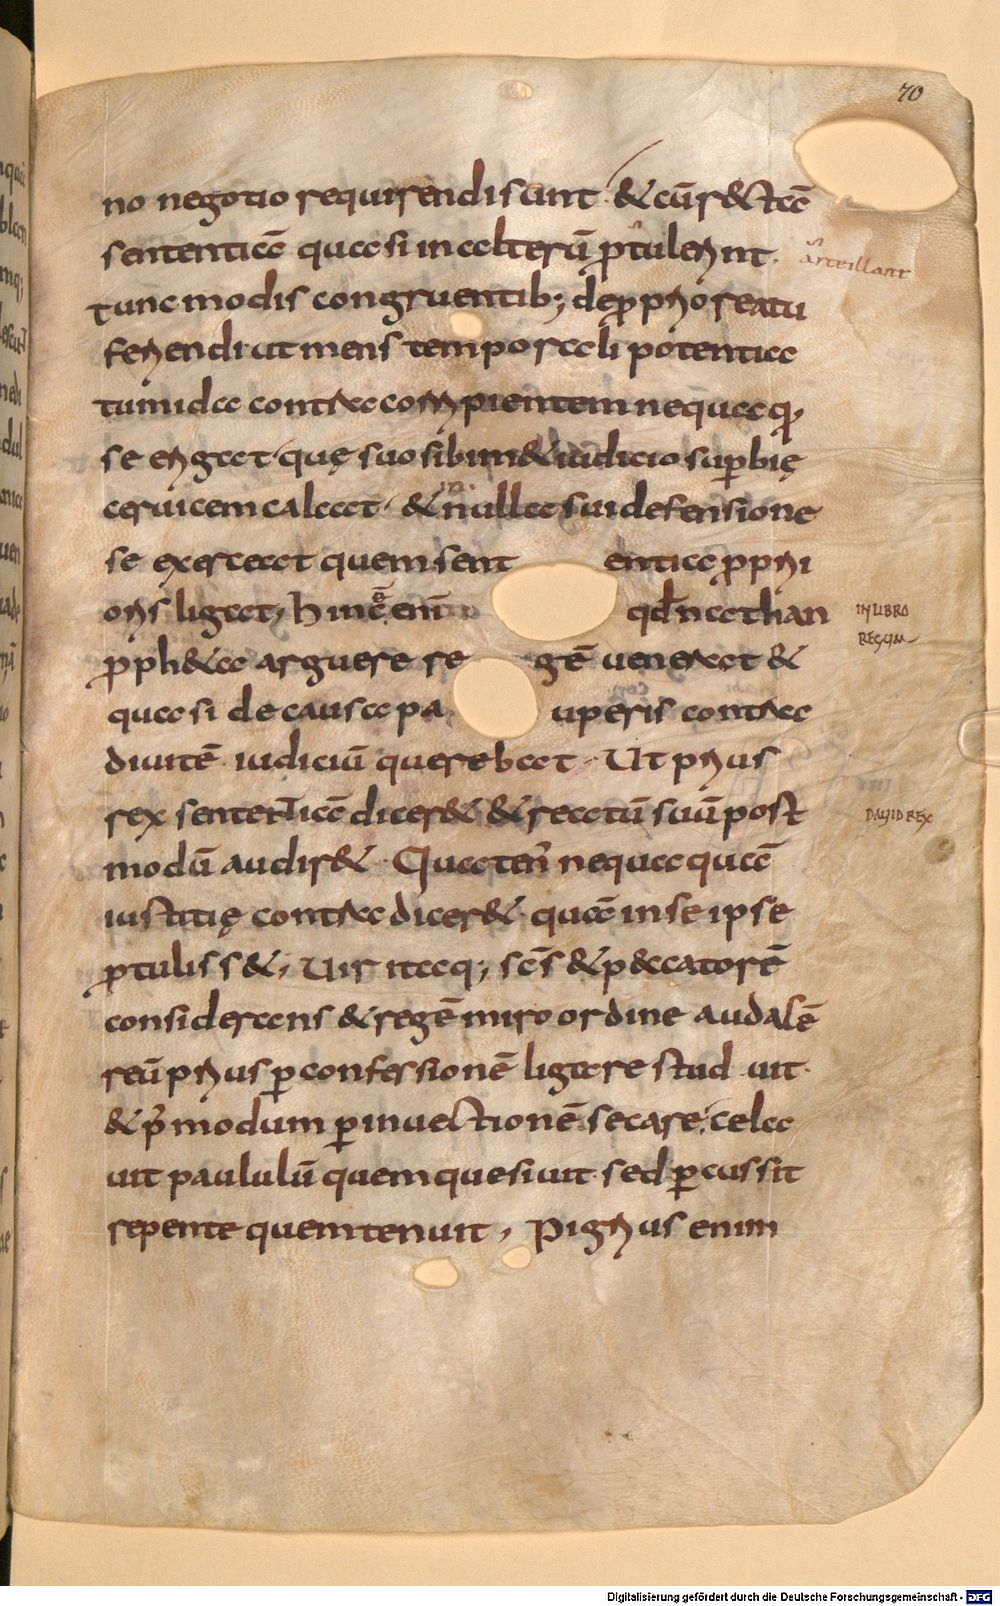 70
no negotio requirendi sunt & cū rectā
sententiā qua si in alterū ptulerint.
tunc modis congruentib; de ppri o reatu
feriendi ut mens temporali potentia
tumida contra corripientem nequaq
se erigat que suo sibim& iudicio supbię
ceruicem calcat & in nulla sui defensione
se exerceat quem sent entia pprii
oris ligat, hinc ē enī qd nathan
ppheta arguere re gē venerat &
quasi de causa pa uperis contra
diuitē iudiciū querebat. Ut prius
rex sententiā dicer& & reatū suū post
modū audir& Quaten nequaquā
iustitię contra dicer& quā in se ipse
ptuliss&, Uir itaq; scs & peccatorē
considerans & regē miro ordine audacē
reū prius p confessionē ligare stud uit.
& p modum p inuectionē secare, cela
uit paululū quem quesiuit. sed pcussit
repente quem tenuit, Pigrius enim
IN LIBRO
REGUM
DAVID REX
Digitalisierung gefördert durch die Deutsche Forschungsgemeinschaft - DFG